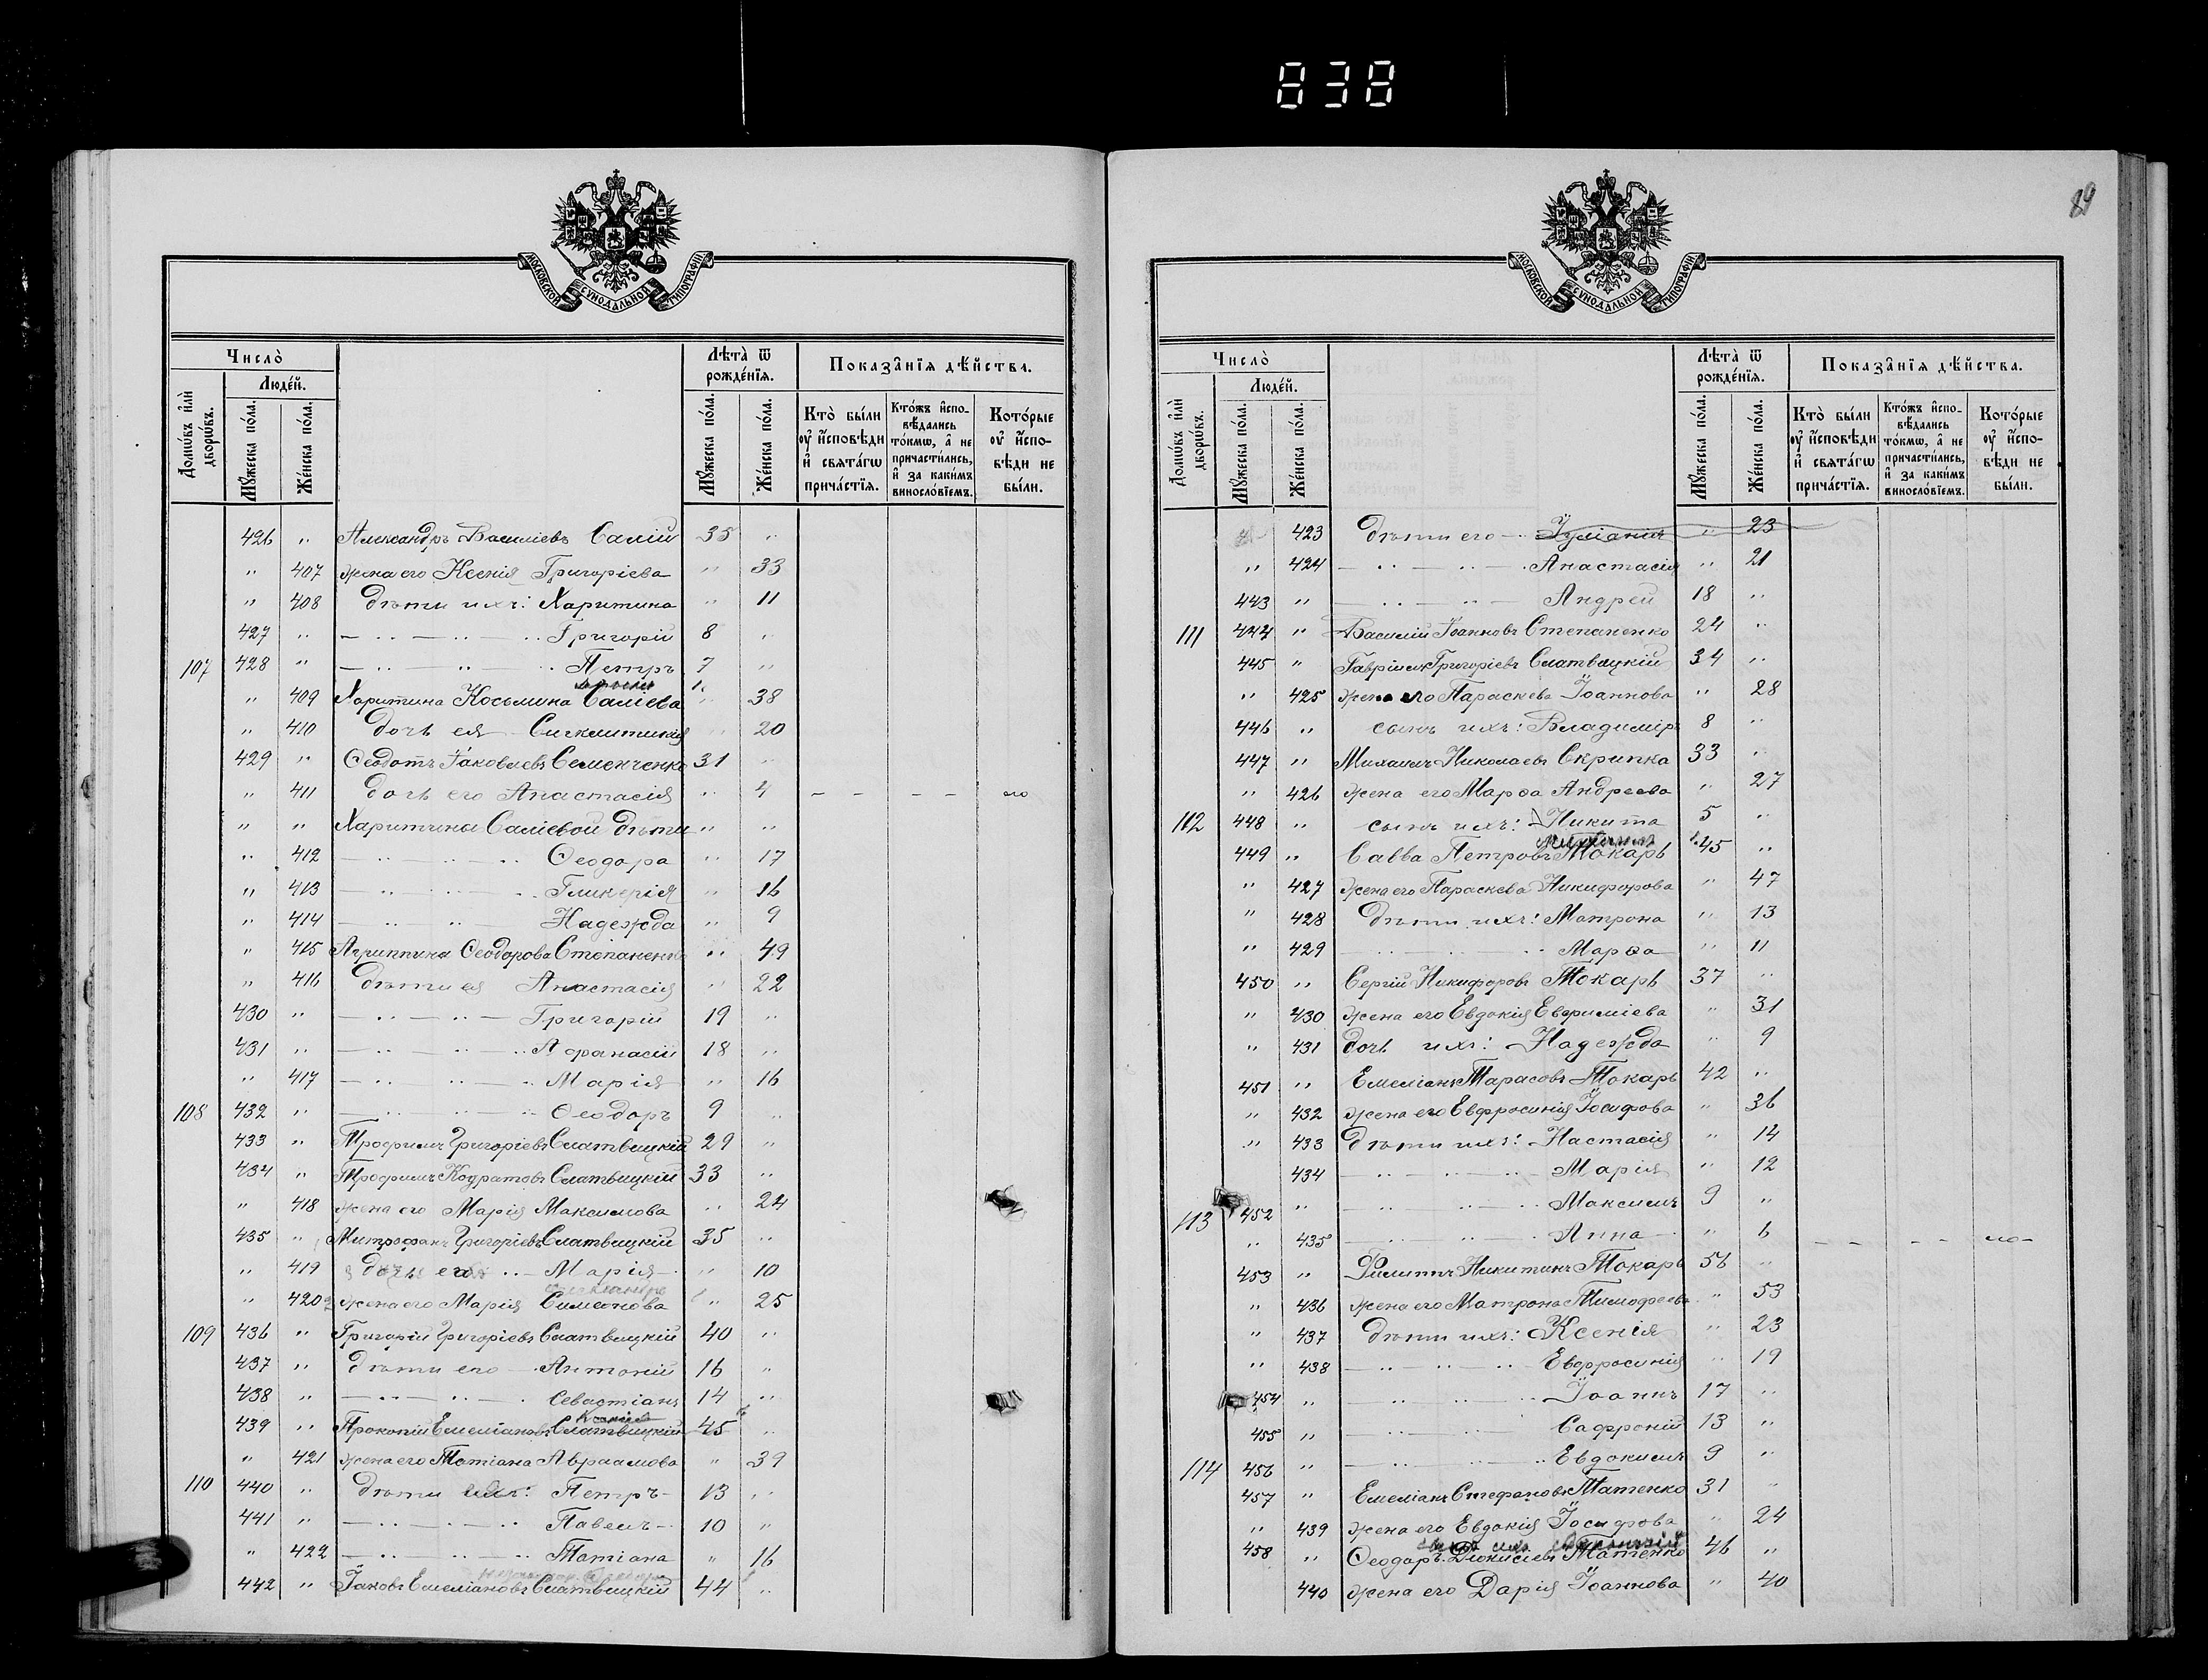 838
МОСКОВСКОЙ СУНОДАЛЬНОЙ ТИПОГРАФІИ
Число̀
Лѣта̀ ѿ рожде́нїѧ.
Показа̑нїѧ дѣ́йства.
Домѡ́въ и҆лѝ дворѡ́въ.
Люде́й.
Мꙋ́жеска по́ла.
Же́нска по́ла.
Мꙋ́жеска по́ла.
Же́нска по́ла.
Кто̀ бы́ли ᲂу҆ и҆́сповѣди и҆ свѧта́гѡ прича́стїѧ.
Кто́жъ и҆спо-вѣ́дались то́кмѡ, а҆ не причасти́лись, и҆ за каки́мъ винослов́їемъ.
Кото́рые ᲂу҆ и҆́спо-вѣди не бы́ли.
426 " Александръ Василіевъ Салій 35 "
" 407 жена его Ксенія Григоріева " 33
" 408 дѣти ихъ: Харитина " 11
427 " — " — " Григорій 8 "
107 428 " — " — " Петръ 7 "
" 409 Харитина Косьмина Саліева " 38
" 410 дочь ея Сигклитикія " 20
429 " Ѳеодотъ Іаковлевъ Семенченко 31 "
" 411 дочь его Анастасія " 4 — — — — но
" " Харитины Саліевой дѣти " "
" 412 — " — " Ѳеодора " 17
" 413 — " — " Гликерія " 16
" 414 — " — " Надежда " 9
" 415 Агриппина Ѳеодорова Степаненко " 49
" 416 дѣти ея Анастасія " 22
430 " — " — " — Григорій 19 "
431 " — " — " Афанасій 18 "
" 417 — " — " Марія " 16
108 432 " — " — " Ѳеодоръ 9 "
433 " Трофимъ Григоріевъ Слатвицкій 29 "
434 " Трофимъ Кодратовъ Слатвицкій 33 "
" 418 жена его Марія Максимова " 24
435 " Митрофанъ Григоріевъ Слатвицкій 35 "
" 419 дочь его " — Марія " 10
" 420 жена его Марія Симеонова " 25
109 436 " Григорій Григоріевъ Слатвицкій 40 "
437 " дѣти его — Антоній 16 "
438 " — " — " Севастіанъ 14 "
439 " Прокопій Емеліановъ Слатвицкій 45 "
" 421 жена его Татіана Авраамова " 39
110 440 " дѣти ихъ: Петръ 13 "
441 " — " — " Павелъ 10 "
" 422 — " — " Татіана " 16
442 " Іаковъ Емеліановъ Слатвицкій 44 "
89
МОСКОВСКОЙ СУНОДАЛЬНОЙ ТИПОГРАФІИ
Число̀
Лѣта̀ ѿ рожде́нїѧ.
Показа̑нїѧ дѣ́йства.
Домѡ́въ и҆лѝ дворѡ́въ.
Люде́й.
Мꙋ́жеска по́ла.
Же́нска по́ла.
Мꙋ́жеска по́ла.
Же́нска по́ла.
Кто̀ бы́ли ᲂу҆ и҆́сповѣди и҆ свѧта́гѡ прича́стїѧ.
Кто́жъ и҆спо-вѣ́дались то́кмѡ, а҆ не причасти́лись, и҆ за каки́мъ винослов́їемъ.
Кото́рые ᲂу҆ и҆́спо-вѣди не бы́ли.
423 дѣти его — Іуліанія " 23
" 424 — " — " — Анастасія " 21
443 " — " — " — Андрей 18 "
111 444 " Василій Іоанновъ Степаненко 24 "
445 " Гавріилъ Григоріевъ Слатвицкій 34 "
" 425 жена его Параскева Іоаннова " 28
446 " сынъ ихъ: Владиміръ 8 "
447 " Михаилъ Николаевъ Скрипка 33 "
" 426 жена его Марѳа Андреева " 27
112 448 " сынъ ихъ: Никита 5 "
449 " Савва Петровъ Токарь 45 "
" 427 жена его Параскева Никифорова " 47
" 428 дѣти ихъ: Матрона " 13
" 429 — " — " Марѳа " 11
450 " Сергій Никифоровъ Токарь 37 "
" 430 жена его Евдокія Евфиміева " 31
" 431 дочь ихъ: Надежда " 9
451 " Емеліанъ Тарасовъ Токарь 42 "
" 432 жена его Евфросинія Іосифова " 36
" 433 дѣти ихъ: Настасія " 14
434 — " — " Марія " 12
113 452 " — " — " Максимъ 9 "
" 435 — " — " Анна " 6 — — — — но
453 " Филиппъ Никитинъ Токарь 56 "
" 436 жена его Матрона Тимофеева " 53
" 437 дѣти ихъ: Ксенія " 23
" 438 — " — " Евфросинія " 19
454 " — " — " Іоаннъ 17 "
455 " — " — Софроній 13 "
114 456 " — " — " Евдокимъ 9 "
457 " Емеліанъ Стефановъ Татенко 31 "
" 439 жена его Евдокія Іосифова " 24
458 " Ѳеодоръ Діонисіевъ Татенко 46 "
440 жена его Дарія Іоаннова " 40